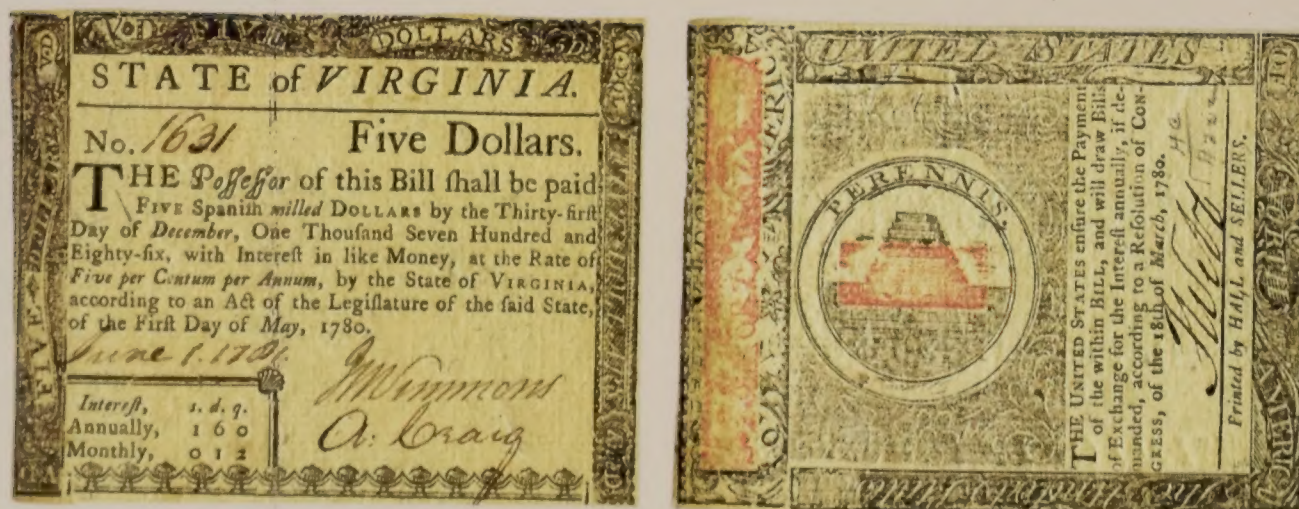 V·D FIVE DOLLARS 5D
STATE of VIRGINIA.
No. 1631 Five Dollars.
THE Poſſeſſor of this Bill ſhall be paid
FIVE Spaniſh milled DOLLARS by the Thirty-firſt
Day of December, One Thouſand Seven Hundred and
Eighty-ſix, with Intereſt in like Money, at the Rate of
Five per Centum per Annum, by the State of VIRGINIA,
according to an Act of the Legiſlature of the ſaid State,
of the Firſt Day of May, 1780.
June 1. 1781
A: Craig
Intereſt, s. d. q.
Annually, 1 6 0
Monthly, 0 1 2
FIVE
UNITED STATES
PERENNIS.
THE UNITED STATES enſure the Payment
of the within BILL, and will draw Bills
of Exchange for the Intereſt annually, if de-
manded, according to a Reſolution of CON-
GRESS, of the 18th of March, 1780.
Printed by HALL and SELLERS.